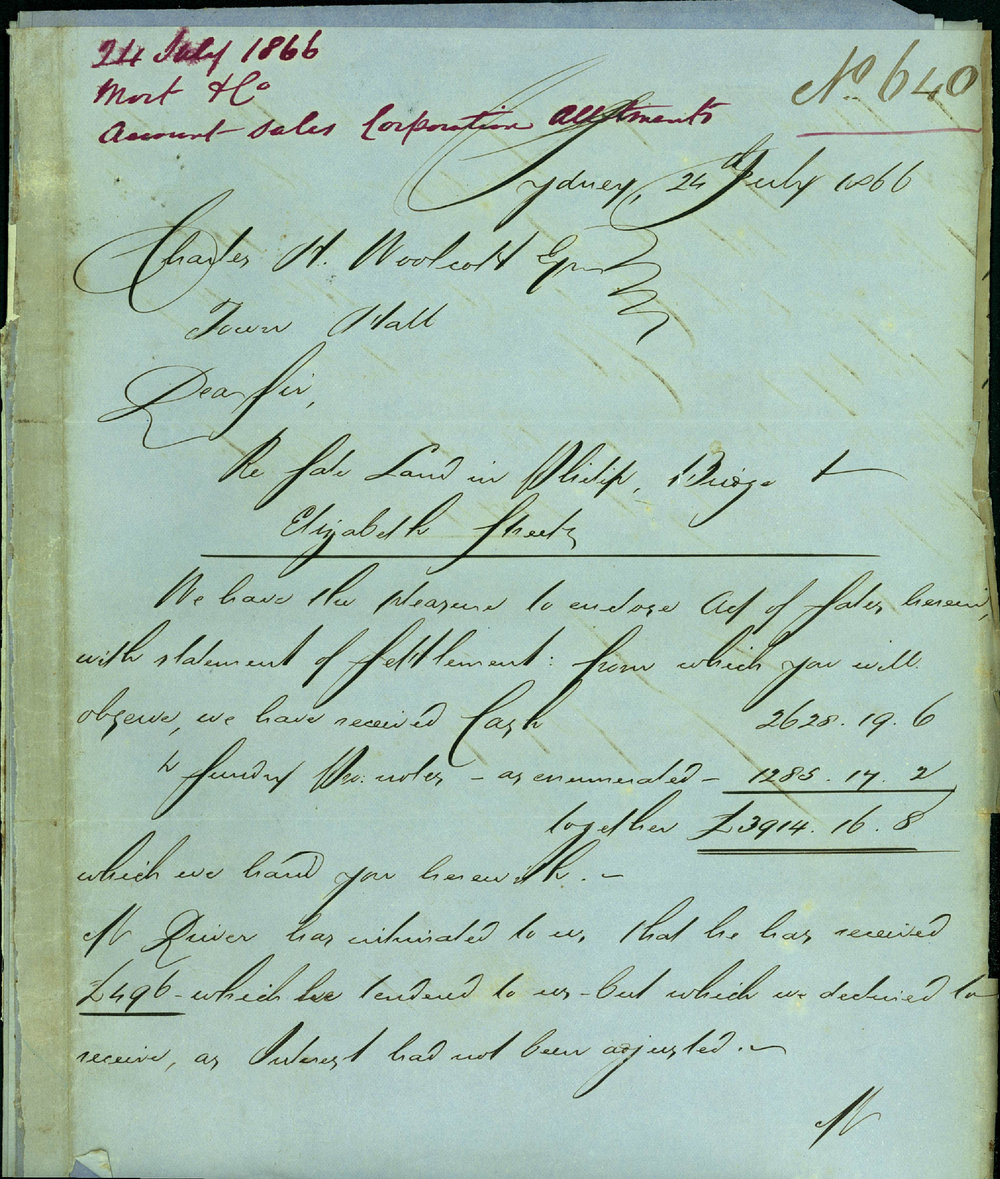 24 July 1866
Mort & Co
Account Sales Corporation Allotments
No 640
Sydney, 24th July 1866
Charles H. Woolcott Esqre
Town Hall
Dear Sir,
Re Sale Land in Philip, Bridge &
Elizabeth Streets
We have the pleasure to enclose Act of Sales herein,
with statement of settlement: from which you will
observe, we have received Cash 2628. 19. 6
& Sundry Pro: notes – as enumerated – 1285. 17. 2
together £3914. 16. 8
which we hand you herewith. –
Mr Driver has intimated to us, that he has received
£496 – which he tendered to us – but which we declined to
receive, as Interest had not been adjusted. –
Mr